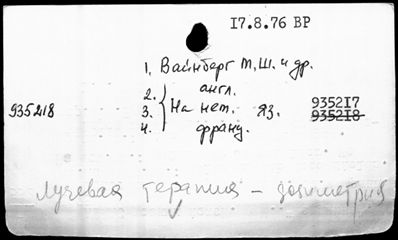 17.8.76 ВР
1. Вайнберг М,Ш. и др.
2. англ.
935218 3. На нем. яз. 935217
4. франц. 935218
лучевая терапия - дозиметрия